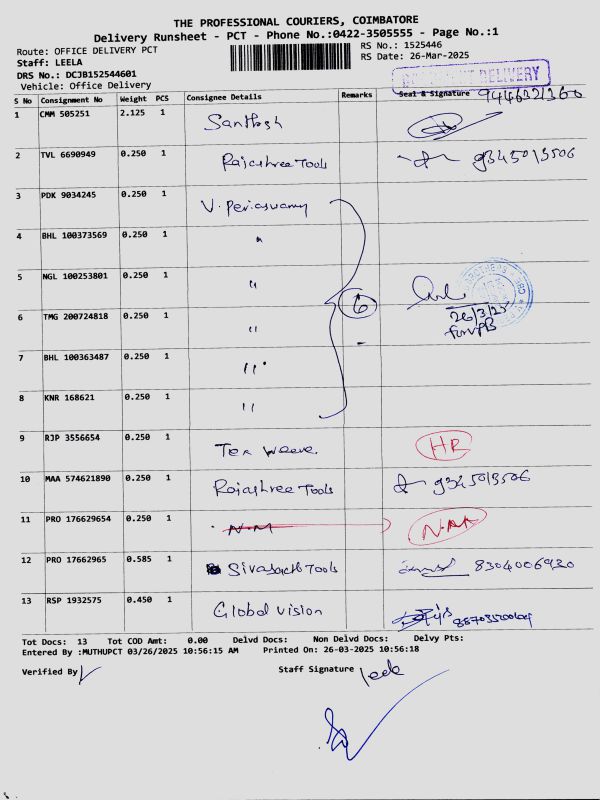 THE PROFESSIONAL COURIERS, COIMBATORE
Delivery Runsheet - PCT - Phone No.:0422-3505555 - Page No.:1
Route: OFFICE DELIVERY PCT
RS No.: 1525446
Staff: LEELA
RS Date: 26-Mar-2025
DRS No.: DCJB152544601
Vehicle: Office Delivery
DELIVERY
S No Consignment No Weight PCS Consignee Details Remarks Seal & Signature 9446221360
1 CMM 505251 2.125 1 Santhosh
2 TVL 6690949 0.250 1 Rajashree Tools 9345013506
3 PDK 9034245 0.250 1 V. Periaswamy
4 BHL 100373569 0.250 1 "
5 NGL 100253801 0.250 1 "
6 TMG 200724818 0.250 1 " 6 26/3/25
for VPB
7 BHL 100363487 0.250 1 "
8 KNR 168621 0.250 1 "
9 RJP 3556654 0.250 1 Tex weave. HR
10 MAA 574621890 0.250 1 Rajashree Tools 9345013506
11 PRO 176629654 0.250 1 N.M
12 PRO 17662965 0.585 1 Sivasacth Tools 8304006920
13 RSP 1932575 0.450 1 Global vision
Tot Docs: 13 Tot COD Amt: 0.00 Delvd Docs: Non Delvd Docs: Delvy Pts:
Entered By :MUTHUPCT 03/26/2025 10:56:15 AM Printed On: 26-03-2025 10:56:18
Verified By
Staff Signature leela